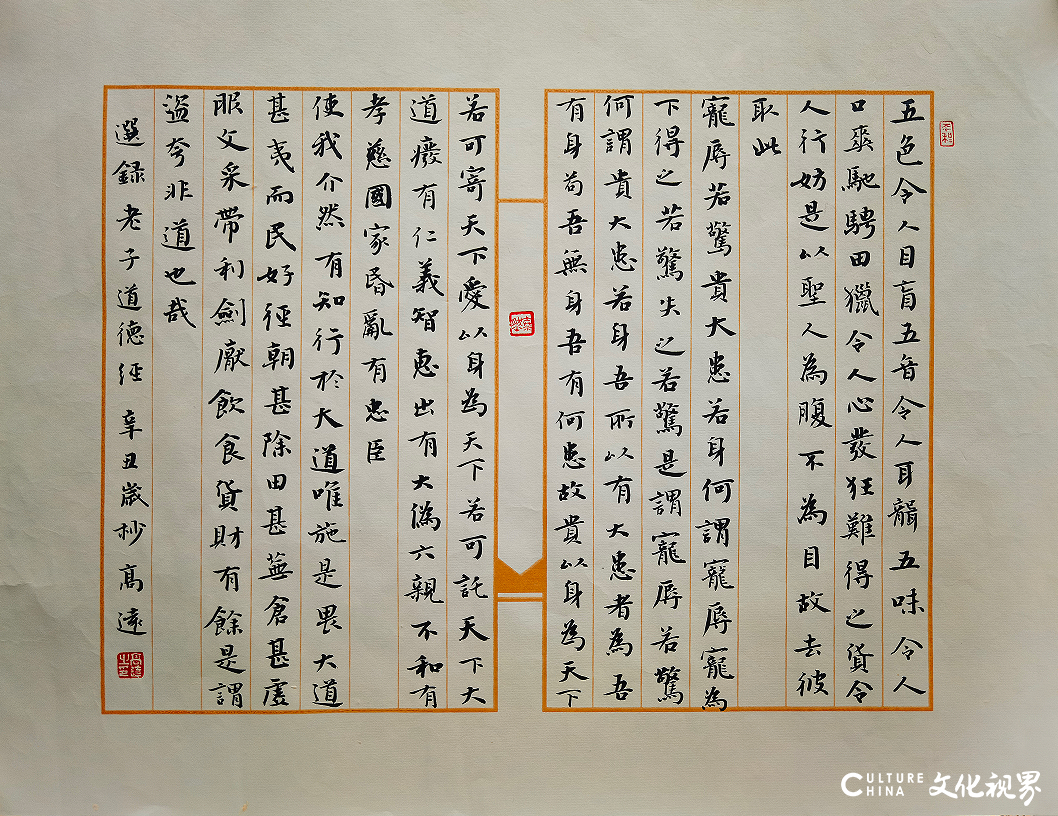 五色令人目盲五音令人耳聾五味令人
口爽馳騁田獵令人心發狂難得之貨令
人行妨是以聖人為腹不為目故去彼
取此
寵辱若驚貴大患若身何謂寵辱寵為
下得之若驚失之若驚是謂寵辱若驚
何謂貴大患若身吾所以有大患者為吾
有身苟吾無身吾有何患故貴以身為天下
若可寄天下愛以身為天下若可託天下大
道癈有仁義智惠出有大偽六親不和有
孝慈國家昏亂有忠臣
使我介然有知行於大道唯施是畏大道
甚夷而民好徑朝甚除田甚蕪倉甚虛
服文采帶利劍厭飲食貨財有餘是謂
盜夸非道也哉
選錄老子道德經 辛丑歲杪高遠
CULTURE CHINA 文化视界